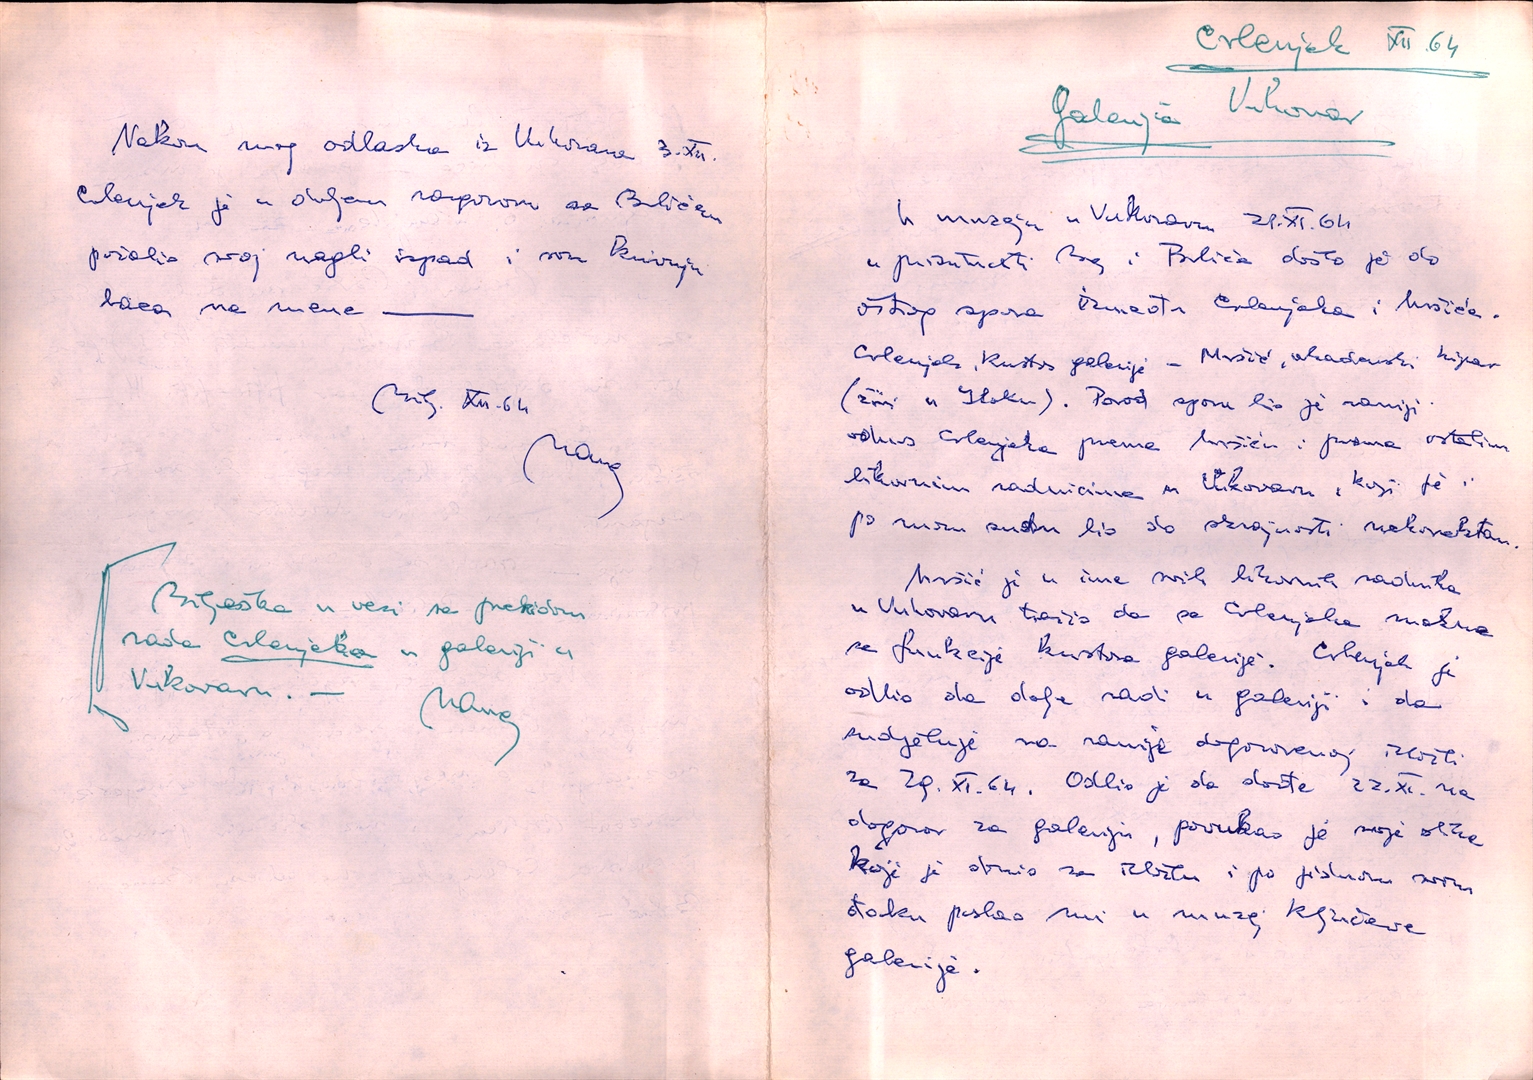 Nakon mog odlaska iz Vukovara 3.XII.
Crlenjak je u duljem razgovoru sa Brlićem
požalio svoj nagli ispad i svu krivnju
baca na mene —
Bilj. XII.64
Bilješka u vezi sa prekidom
rada Crlenjaka u galeriji u
Vukovaru. —
Crlenjak XII.64
Galerija Vukovar
U muzeju u Vukovaru 21.XI.64
u prisutnosti Brlića došlo je do
oštrog spora između Crlenjaka i Mršića.
Crlenjak, kustos galerije – Mršić, akademski kipar
(živi u Iloku). Povod sporu bio je raniji
odnos Crlenjaka prema Mršiću i prema ostalim
likovnim radnicima u Vukovaru, koji je i
po mom sudu bio do skrajnosti nekorektan.
Mršić je u ime svih likovnih radnika
u Vukovaru tražio da se Crlenjaka makne
sa funkcije kustosa galerije. Crlenjak je
odbio da dalje radi u galeriji i da
sudjeluje na ranije dogovorenoj izložbi
za 29.XI.64. Odbio je da dođe 22.XI. na
dogovor za galeriju, povukao je svoje slike
koje je donio za izložbu i po jednom svom
đaku poslao mi u muzej ključeve
galerije.